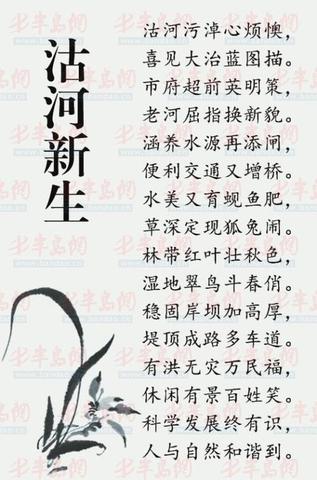 沽河新生
沽河污淖心烦懊,
喜见大治蓝图描。
市府超前英明策,
老河屈指换新貌。
涵养水源再添闸,
便利交通又增桥。
水美又育蚬鱼肥,
草深定现狐兔闹。
林带红叶壮秋色,
湿地翠鸟斗春俏。
稳固岸坝加高厚,
堤顶成路多车道。
有洪无灾万民福,
休闲有景百姓笑。
科学发展终有识,
人与自然和谐到。